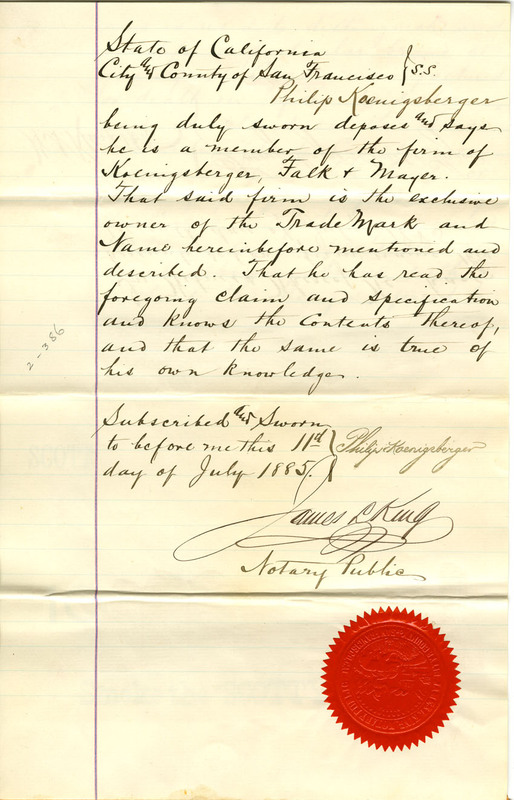 State of California
City and County of San Francisco } S.S.
Philip Koenigsberger
being duly sworn deposes and says
he is a member of the firm of
Koenigsberger, Falk & Mayer.
That said firm is the exclusive
owner of the Trade Mark and
Name hereinbefore mentioned and
described. That he has read the
foregoing claim and specification
and knows the Contents thereof,
and that the same is true of
his own knowledge.
2-386
Subscribed and Sworn
to before me this 11d } Philip Koenigsberger
day of July 1885.
James L King
Notary Public